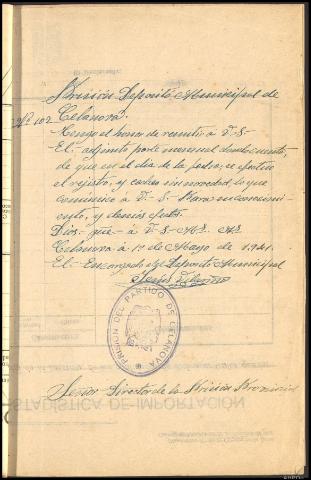 Prisión Deposito Municipal de
Nº 102 Celanova.
Tengo el honor de remitir à V.-S-
El adjunto parte mensual
de que en el dia de la fecha, se efectuo
el registro, y cacheo sin novedad, lo que
comunico à V.- S- Para su conocimi-
ento, y demás efectos.
Dios- gue- à V.- S- Ms. As.
Celanova à 1º de Mayo de 1941.
El- Encargado del Deposito Municipal
PRISION DEL PARTIDO DE CELANOVA
Señor Director de la Prisión Provincial
ESTADÍSTICA DE-IMPORTACIÓN